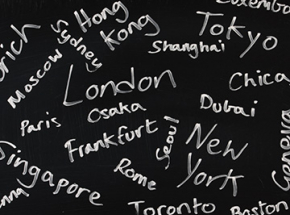 Luxembo
Hong
Kong
Tokyo
urich
Sydney
Shanghai
Moscow
London
Chica
Osaka
Dubai
Paris
Frankfurt
Seoul
New
York
Geneva
Singapore
Rome
enna
Toronto
Boston